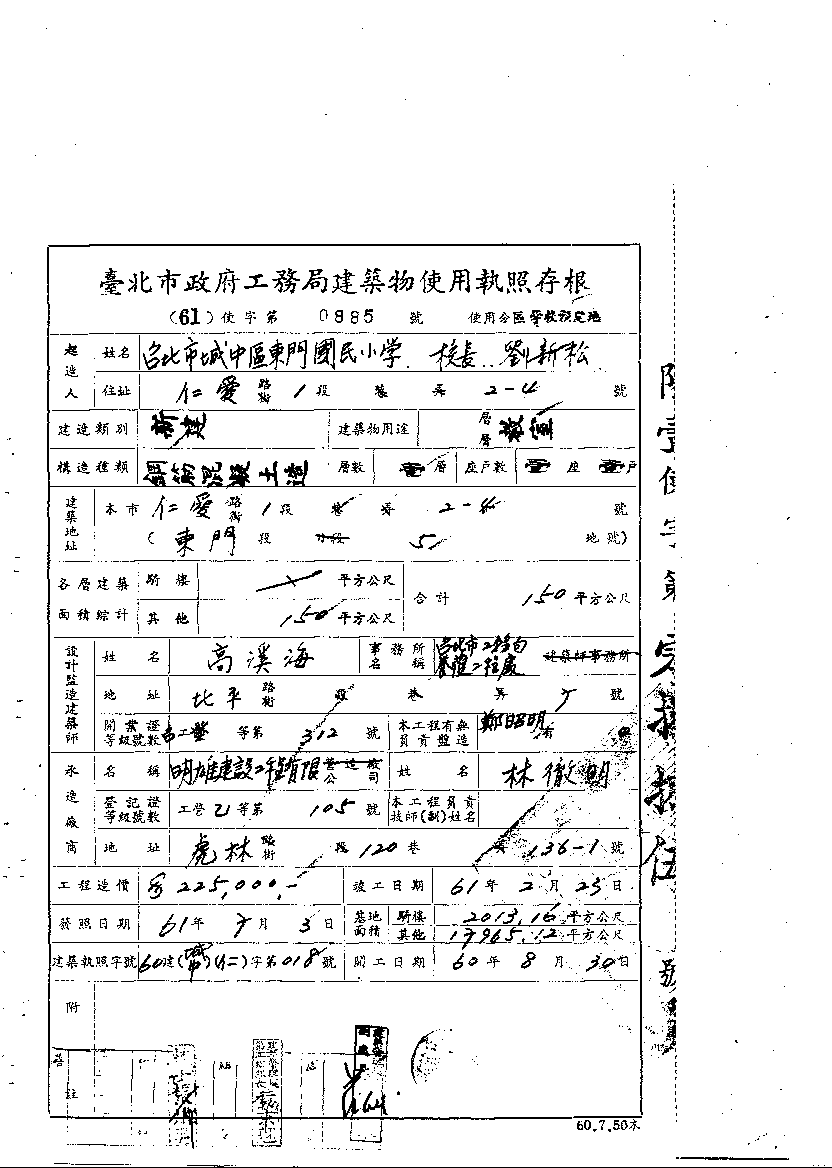 臺北市政府工務局建築物使用執照存根
(61)使字第 0885 號 使用分區學校預定地
起造人 姓名 台北市城中區東門國民小学 校長 劉新松
住址 仁愛 路街 1 段 巷 弄 2-4 號
建造類別 新建 建築物用途 層層 教室
構造種類 鋼筋混凝土造 層數 壹層 座戶數 壹座 壹戶
建築地址 本市 仁愛 路街 1 段 巷 弄 2-4 號
(東門 段 小段 5 地號)
各層建築面積綜計 騎樓 平方公尺 合計 150 平方公尺
其他 150 平方公尺
設計監造建築師 姓名 高溪海 事務所名稱 建築師事務所
地址 北平 路街 段 巷 弄 5 號
開業證等級號數 等第 312 號 本工程有無員責監造 鄭昭明
承造廠商 名稱 明雄建設工程有限公司 姓名 林徹明
登記證等級號數 工營乙等第 105 號 本工程員責技師(副)姓名
地址 虎林 路街 段 120 巷 弄 136-1 號
工程造價 225,000,- 竣工日期 61年 2月 23日
發照日期 61年 5月 3日 基地面積 騎樓 2013.16 平方公尺
其他 17965.12 平方公尺
建築執照字號 60建(城中)(仁)字第018號 開工日期 60年 8月 30日
附
註
60.7.50本